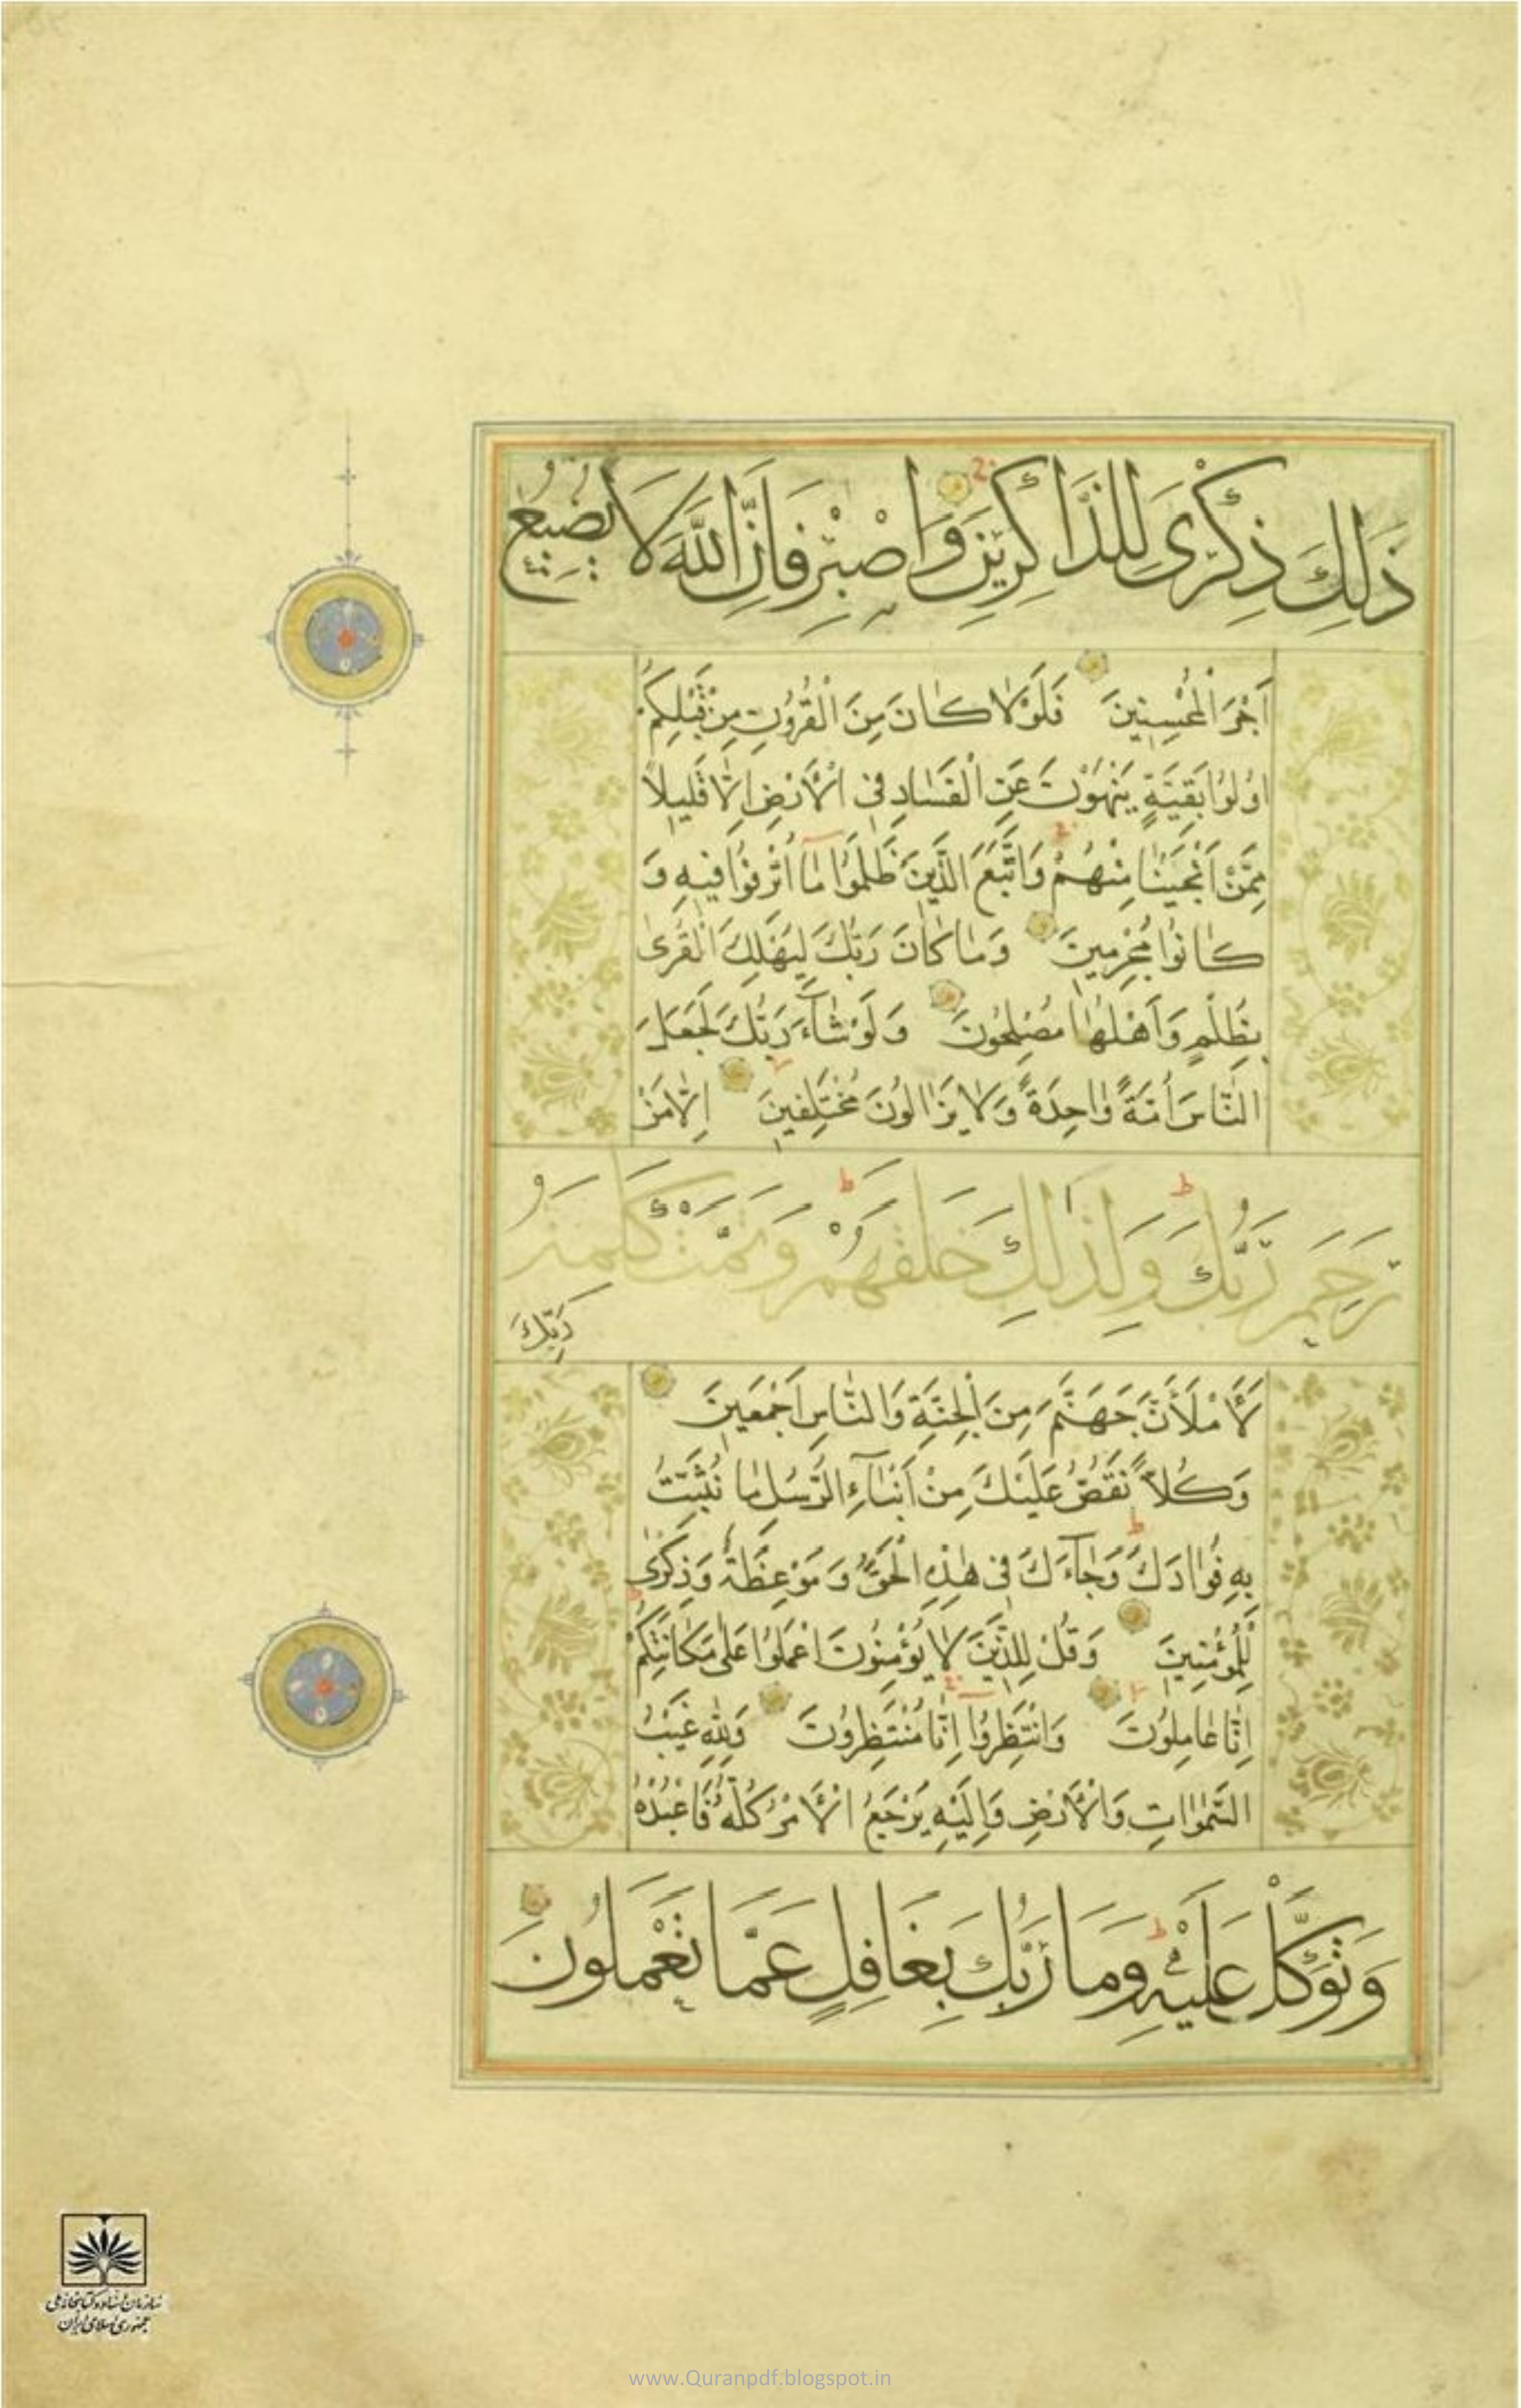 ذَلِكَ ذِكْرَى لِلذَّاكِرِينَ وَاصْبِرْ فَإِنَّ اللَّهَ لَا يُضِيعُ
أَجْرَ الْمُحْسِنِينَ فَلَوْلَا كَانَ مِنَ الْقُرُونِ مِنْ قَبْلِكُمْ
اُولُوا بَقِيَّةٍ يَنْهَوْنَ عَنِ الْفَسَادِ فِي الْأَرْضِ إِلَّا قَلِيلًا
مِمَّنْ أَنْجَيْنَا مِنْهُمْ وَاتَّبَعَ الَّذِينَ ظَلَمُوا مَا أُتْرِفُوا فِيهِ وَ
كَانُوا مُجْرِمِينَ وَمَا كَانَ رَبُّكَ لِيُهْلِكَ الْقُرَى
بِظُلْمٍ وَأَهْلُهَا مُصْلِحُونَ وَلَوْ شَآءَ رَبُّكَ لَجَعَلَ
النَّاسَ أُمَّةً وَاحِدَةً وَلَا يَزَالُونَ مُخْتَلِفِينَ إِلَّا مَنْ
رَحِمَ رَبُّكَ وَلِذَلِكَ خَلَقَهُمْ وَتَمَّتْ كَلِمَةُ
رَبِّكَ
لَأَمْلَأَنَّ جَهَنَّمَ مِنَ الْجِنَّةِ وَالنَّاسِ أَجْمَعِينَ
وَكُلًّا نَقُصُّ عَلَيْكَ مِنْ أَنْبَآءِ الرُّسُلِ مَا نُثَبِّتُ
بِهِ فُؤَادَكَ وَجَآءَكَ فِي هَذِهِ الْحَقُّ وَمَوْعِظَةٌ وَذِكْرَى
لِلْمُؤْمِنِينَ وَقُلْ لِلَّذِينَ لَا يُؤْمِنُونَ اعْمَلُوا عَلَى مَكَانَتِكُمْ
إِنَّا عَامِلُونَ وَانْتَظِرُوا إِنَّا مُنْتَظِرُونَ وَلِلَّهِ غَيْبُ
السَّمَوَاتِ وَالْأَرْضِ وَإِلَيْهِ يُرْجَعُ الْأَمْرُ كُلُّهُ فَاعْبُدْهُ
وَتَوَكَّلْ عَلَيْهِ وَمَا رَبُّكَ بِغَافِلٍ عَمَّا تَعْمَلُونَ
سازمان اسناد و کتابخانه ملی
جمهوری اسلامی ایران
www.Quranpdf.blogspot.in